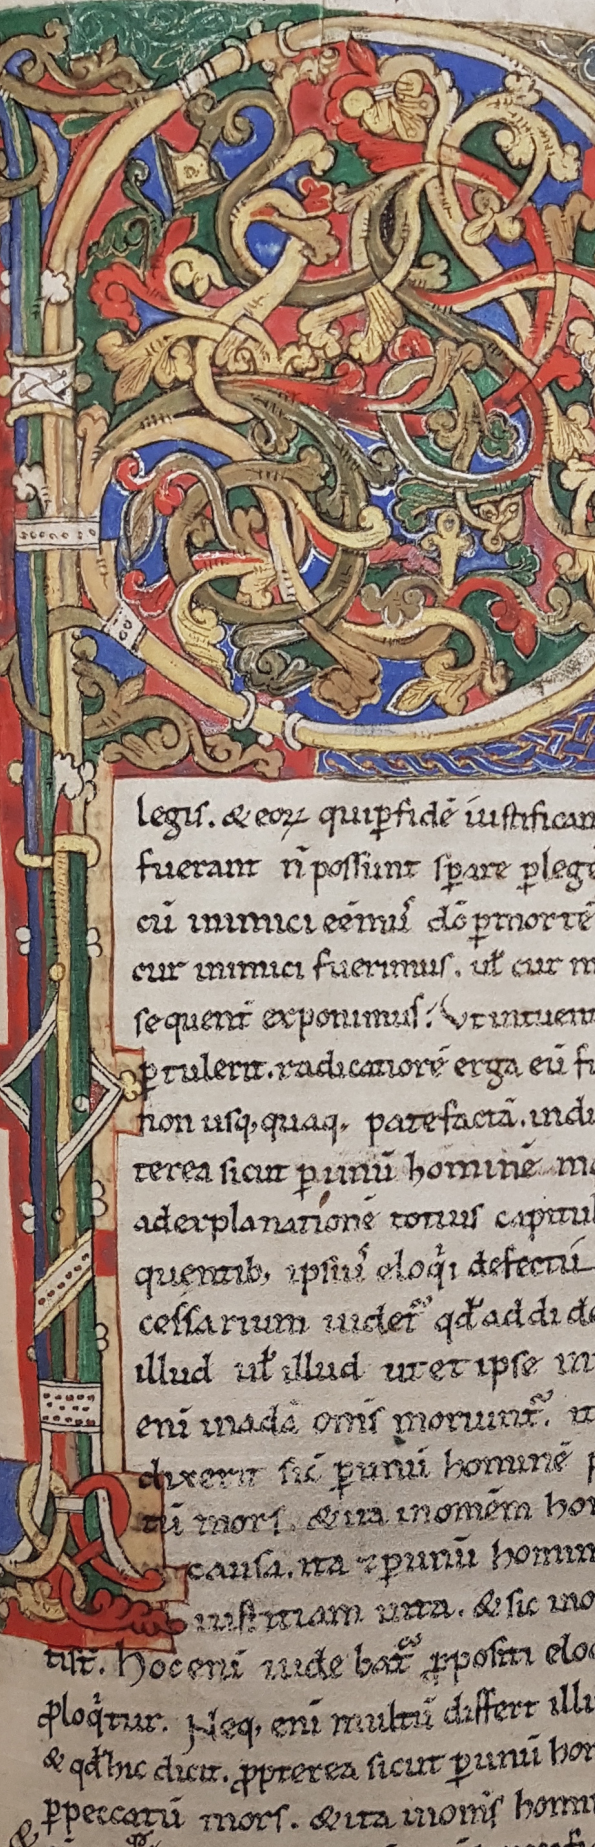 legis. & eoꝝ qui ꝑ fidē iustifican
fuerant n̄ possunt sꝑare ꝑ legē
cū inimici eēmus dō ꝑ mortē
cur inimici fuerimus. ul̓ cur m
sequenti exponimus. Ut intuem
ꝑtulerit. radicatiorē erga eū fi
non usq; quaq; patefactā. indi
terea sicut ꝑ unū hominē
ad explanationē totius capitul
quentib; ipsius eloq̓i defectū
cessarium uidet᷑ qd̓ addi de
illud ul̓ illud ut et ipse in
eni in adā om̄s moriunt᷑.
dixerit sic ꝑ unū hominē p
tū mors. & ita in omēm hom
causa. ita & ꝑ unū homin
iustitiam uita. & sic in o
tist̓. Hoc eni iudebat᷑ ꝓpositi eloq
ꝓloq̓tur. Neq; eni multū differt illu
& qd̓ hic dicit. ꝓpterea sicut ꝑ unū hom
ꝑ peccatū mors. & ita in om̄s homi